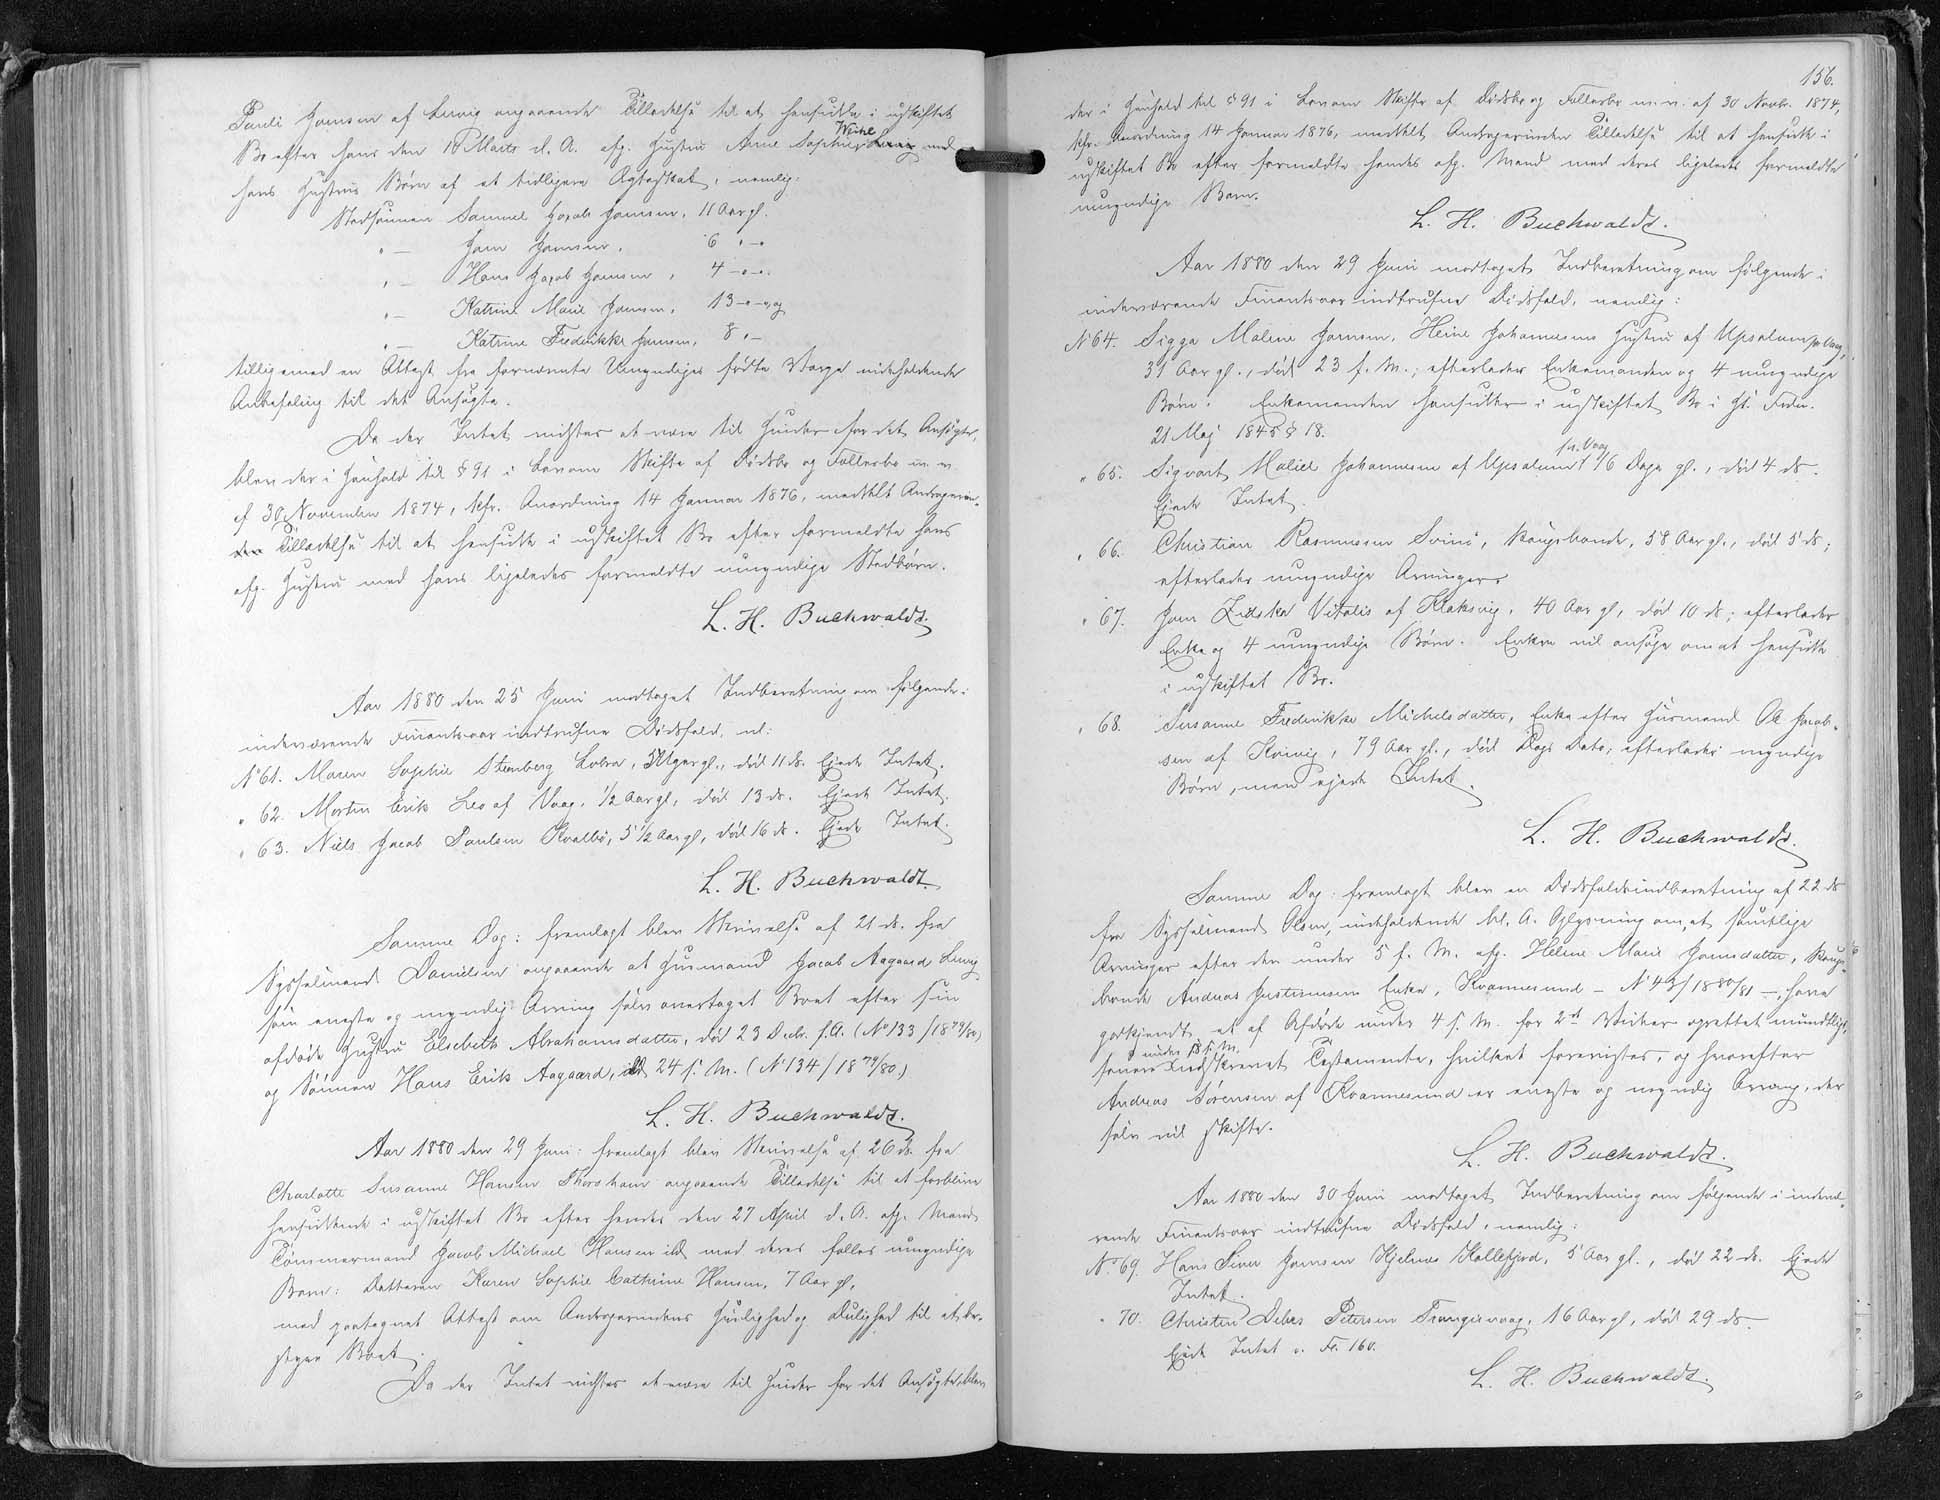 Pauli Joensen af Lervig angaaende Tilladelse til at hensidde i uskiftet
Bo efter hans den 18 Marts d. A. afg. Hustru Anne Sophie Weihe med
hans Hustrus Børn af et tidligere Ægteskab, nemlig:
Stedsønnen Samuel Jacob Joensen, 11 Aar gl.
" — Joen Joensen, 6 " - "
" — Hans Jacob Joensen, 4 - " - "
" — Katrine Marie Joensen, 13 - " - og
" — Katrine Frederikke Joensen, 8 " -
tilligemed en Attest fra fornævnte Umyndiges fødte Værge indeholdende
Anbefaling til det Ansøgte.
Da der Intet vidstes at være til Hinder for det Ansøgte,
blev der i Henhold til § 91 i Lov om Skifte af Dødsbo og Fællesbo m. v.
af 30 November 1874, kfr. Anordning 14 Januar 1876, meddelt Andragerin-
den Tilladelse til at hensidde i uskiftet Bo efter formeldte hans
afg. Hustru med hans ligeledes formeldte umyndige Stedbørn.
L. H. Buchwaldt.
Aar 1880 den 25 Juni modtaget Indberetning om følgende i
indeværende Finantsaar indtrufne Dødsfald, nl:
No 61. Maren Sophie Stenberg Lobra, Uger gl., død 11 ds. Ejede Intet.
" 62. Morten Erik Leo af Vaag, 1/2 Aar gl., død 13 ds. Ejede Intet.
" 63. Niels Jacob Poulsen Kvalbø, 5 1/2 Aar gl, død 16 ds. Ejede Intet.
L. H. Buchwaldt.
Samme Dag: fremlagt blev Skrivelse af 21 ds. fra
Sysselmand Danielsen angaaende at Husmand Jacob Aagaard Lervig
som eneste og myndig Arving selv overtaget Boet efter sin
afdøde Hustru Elsebeth Abrahamsdatter, død 23 Decbr. f. A. (No 133/1879/80)
og Sønnen Hans Erik Aagaard, død 24 s. M. (No 134/1879/80.)
L. H. Buchwaldt.
Aar 1880 den 29 Juni: fremlagt blev Skrivelse af 26 ds. fra
Charlotte Susanne Hansen Thorshavn angaaende Tilladelse til at forblive
hensiddende i uskiftet Bo efter hendes den 27 April d. A. afg. Mand
Tømmermand Jacob Michael Hansen ibd med deres fælles umyndige
Barn: Datteren Karen Sophie Cathrine Hansen, 7 Aar gl,
med paategnet Attest om Andragerindens Huslighed og Dulighed til at be-
styre Boet.
Da der Intet vidstes at være til Hinder for det Ansøgte, blev
156.
der i Henhold til § 91 i Lov om Skifte af Dødsbo og Fællesbo m. v. af 30 Novbr. 1874,
kfr. Anordning 14 Januar 1876, meddelt Andragerinden Tilladelse til at hensidde i
uskiftet Bo efter formeldte hendes afg. Mand med deres ligeledes formeldte
umyndige Barn.
L. H. Buchwaldt.
Aar 1880 den 29 Juni modtaget Indberetning om følgende i
indeværende Finantsaar indtrufne Dødsfald, nemlig:
No 64. Sigga Malene Joensen, Heine Johannesens Hustru af Upsalum pr. Vaag,
31 Aar gl., død 23 f. M.; efterlader Enkemanden og 4 umyndige
Børn. Enkemanden hensidder i uskiftet Bo i Hh. t. Frdn.
21 Maj 1845 § 18.
" 65. Sigvart Maliel Johannesen af Upsalum pr. Vaag 6 Dage gl., død 4 ds.
Ejede Intet.
" 66. Christian Rasmussen Svinø, Kongsbonde, 58 Aar gl., død 5 ds;
efterlader umyndige Arvinger
" 67. Joen Zidska Vitalis af Klaksvig, 40 Aar gl, død 10 ds; efterlader
Enke og 4 umyndige Børn. Enken vil ansøge om at hensidde
i uskiftet Bo.
" 68. Susanne Frederikke Michelsdatter, Enke efter Husmand Ole Jacob-
sen af Kvivig, 79 Aar gl., død Dags Dato; efterlader myndige
Børn, men ejede Intet.
L. H. Buchwaldt.
Samme Dag: fremlagt blev en Dødsfaldsindberetning af 22 ds
fra Sysselmand Olsen, indeholdende bl. A. Oplysning om, at samtlige
Arvinger efter den under 5 f. M. afg. Helene Marie Joensdatter, Kongs-
bonde Andreas Justinussens Enke, Kvannesund — No 43/1880/81 —, have
godkjendt et af Afdøde under 4 s. M. for 2de Vidner oprettet mundtligt,
senere under 18 s. M. Indskrevet Testamente, hvilket forevistes, og hvorefter
Andreas Sørensen af Kvannesund er eneste og myndig Arving, der
selv vil skifte.
L. H. Buchwaldt.
Aar 1880 den 30 Juni modtaget Indberetning om følgende i indevæ-
rende Finantsaar indtrufne Dødsfald, nemlig:
No 69. Hans Siver Joensen Hjelnes Kollefjord, 5 Aar gl., død 22 ds. Ejede
Intet.
" 70. Christen Debes Petersen Trangisvaag, 16 Aar gl, død 29 ds.
Ejede Intet v. Fr. 160.
L. H. Buchwaldt.